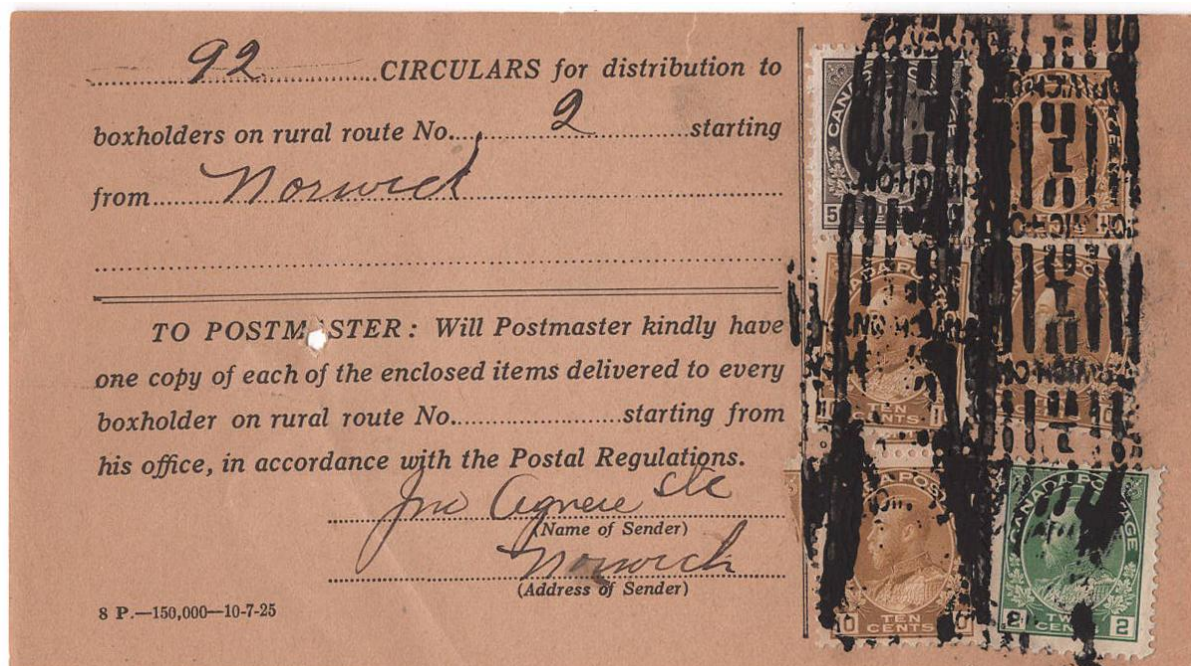 92 CIRCULARS for distribution to
boxholders on rural route No. 2 starting
from Norwich
TO POSTMASTER: Will Postmaster kindly have
one copy of each of the enclosed items delivered to every
boxholder on rural route No. starting from
his office, in accordance with the Postal Regulations.
Jno
(Name of Sender)
Norwich
(Address of Sender)
8 P.—150,000—10-7-25
CANADA
50
CANADA POSTAGE
10 TEN CENTS 10
CANADA POSTAGE
10 TEN CENTS 10
CANADA POSTAGE
2 TWO CENTS 2